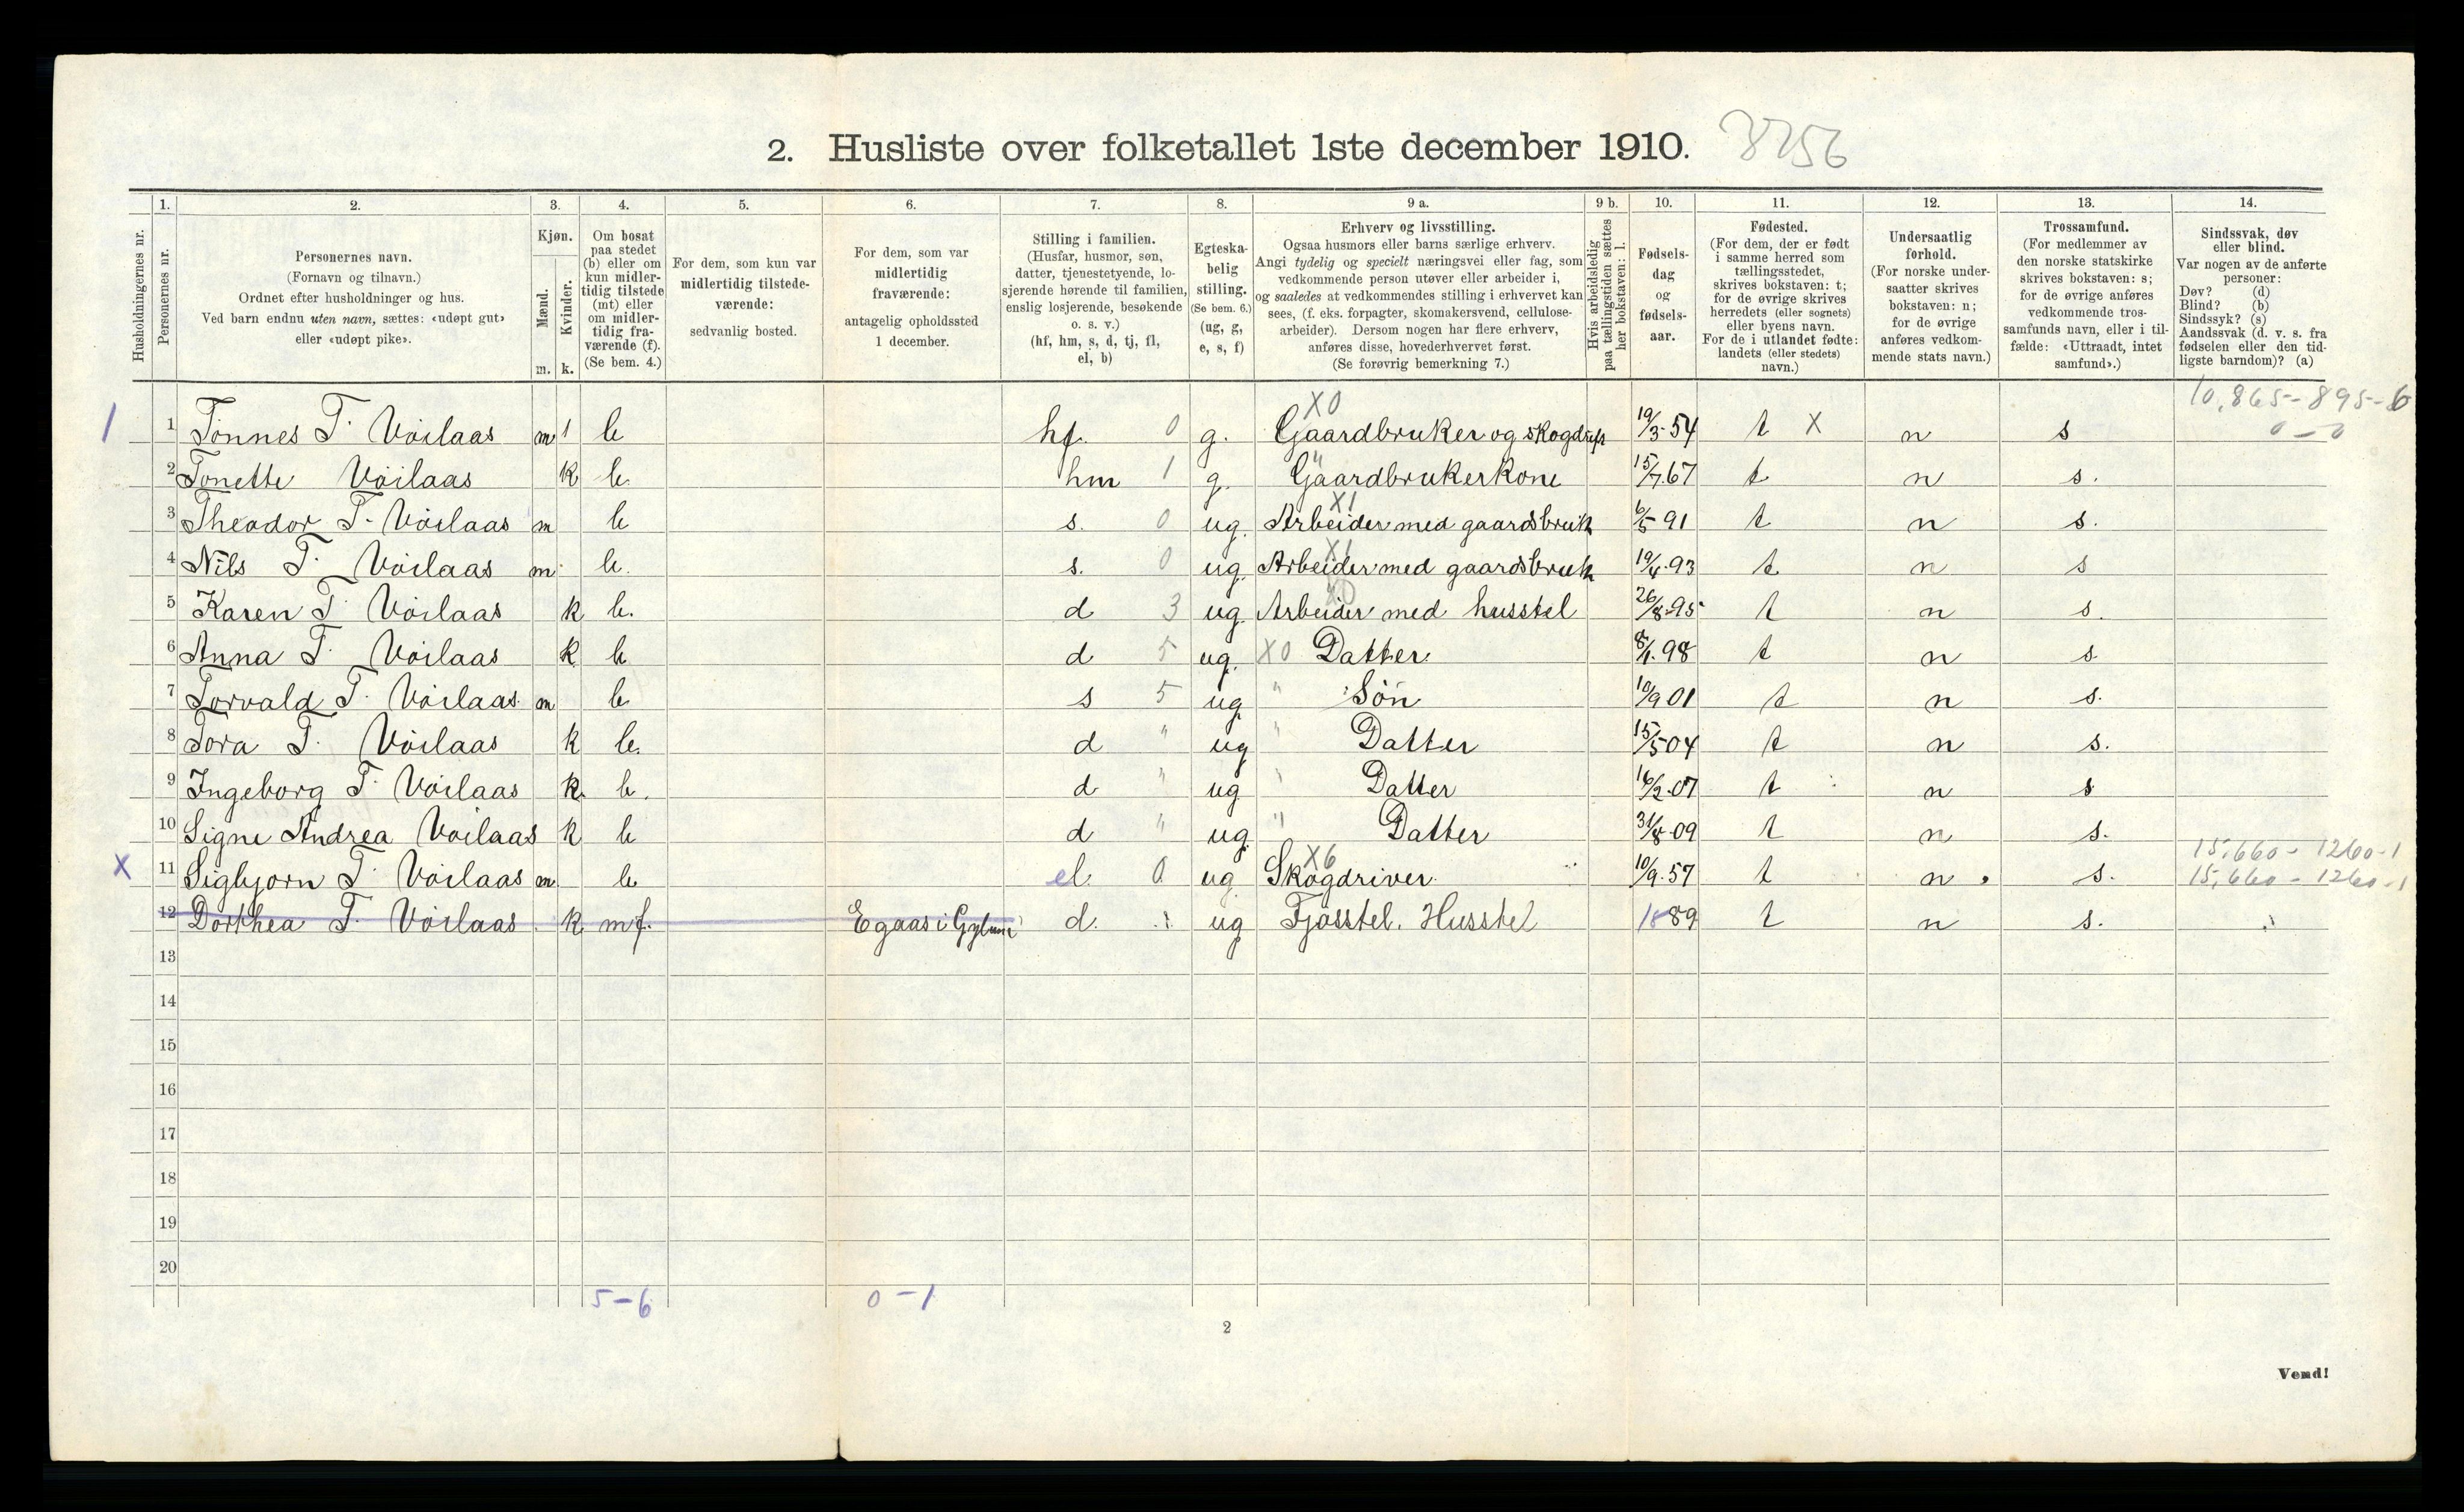 2. Husliste over folketallet 1ste december 1910. 8256
Husholdningernes nr.
1. Personernes nr.
2. Personernes navn.
(Fornavn og tilnavn.)
Ordnet efter husholdninger og hus.
Ved barn endnu uten navn, sættes: «udøpt gut»
eller «udøpt pike».
3. Kjøn.
Mænd. m.
Kvinder. k.
4. Om bosat
paa stedet
(b) eller om
kun midler-
tidig tilstede
(mt) eller
om midler-
tidig fra-
værende (f).
(Se bem. 4.)
5. For dem, som kun var
midlertidig tilstede-
værende:
sedvanlig bosted.
6. For dem, som var
midlertidig
fraværende:
antagelig opholdssted
1 december.
7. Stilling i familien.
(Husfar, husmor, søn,
datter, tjenestetyende, lo-
sjerende hørende til familien,
enslig losjerende, besøkende
o. s. v.)
(hf, hm, s, d, tj, fl,
el, b)
8. Egteska-
belig
stilling.
(Se bem. 6.)
(ug, g,
e, s, f)
9 a. Erhverv og livsstilling.
Ogsaa husmors eller barns særlige erhverv.
Angi tydelig og specielt næringsvei eller fag, som
vedkommende person utøver eller arbeider i,
og saaledes at vedkommendes stilling i erhvervet kan
sees, (f. eks. forpagter, skomakersvend, cellulose-
arbeider). Dersom nogen har flere erhverv,
anføres disse, hovederhvervet først.
(Se forøvrig bemerkning 7.)
9 b. Hvis arbeidsledig
paa tællingstiden sættes
her bokstaven: l.
10. Fødsels-
dag
og
fødsels-
aar.
11. Fødested.
(For dem, der er født
i samme herred som
tællingsstedet,
skrives bokstaven: t;
for de øvrige skrives
herredets (eller sognets)
eller byens navn.
For de i utlandet fødte:
landets (eller stedets)
navn.)
12. Undersaatlig
forhold.
(For norske under-
saatter skrives
bokstaven: n;
for de øvrige
anføres vedkom-
mende stats navn.)
13. Trossamfund.
(For medlemmer av
den norske statskirke
skrives bokstaven: s;
for de øvrige anføres
vedkommende tros-
samfunds navn, eller i til-
fælde: «Uttraadt, intet
samfund».)
14. Sindssvak, døv
eller blind.
Var nogen av de anførte
personer:
Døv? (d)
Blind? (b)
Sindssyk? (s)
Aandssvak (d. v. s. fra
fødselen eller den tid-
ligste barndom)? (a)
X0 10,865-895-6
1 1 Tønnes T. Vöilaas m 1 b hf. 0 g. Gaardbruker og skogdrift 19/3-54 t X n s 0-0
2 Tonette Vöilaas k b. hm 1 g. " Gaardbrukerkone 15/7.67 t n s.
X1
3 Theodor T. Vöilaas m b s. 0 ug. Arbeider med gaardsbruk 6/5 91 t n s.
X1
4 Nils T. Vöilaas m. b. s. 0 ug. Arbeider med gaardsbruk 19/4.93 t n s
X0
5 Karen T. Vöilaas k b. d 3 ug. Arbeider med husstel 26/8-95 t n s.
6 Anna T. Vöilaas k b d 5 ug. X0 Datter. 8/1.98 t n s
7 Torvald T. Vöilaas. m b s 5 ug " Søn 10/9 01 t n s.
8 Tora T. Vöilaas k b. d " ug " Datter 15/5 04 t n s.
9 Ingeborg T. Vöilaas k. b. d " ug " Datter 16/2.07 t n s
10 Signe Andrea Vöilaas k b d " ug. " Datter 31/8-09 t n s.
X6 15,660-1260-1
X 11 Sigbjørn T. Vöilaas m. b el. 0 ug Skogdriver. 10/9.57 t n s. 15,660-1260-1
12 Dorthea T. Vöilaas k. mf. Egaas i d. ug Fjøsstel. Husstel 1889 t n s.
13
14
15
16
17
18
19
20
5-6 0-1
2
Vend!